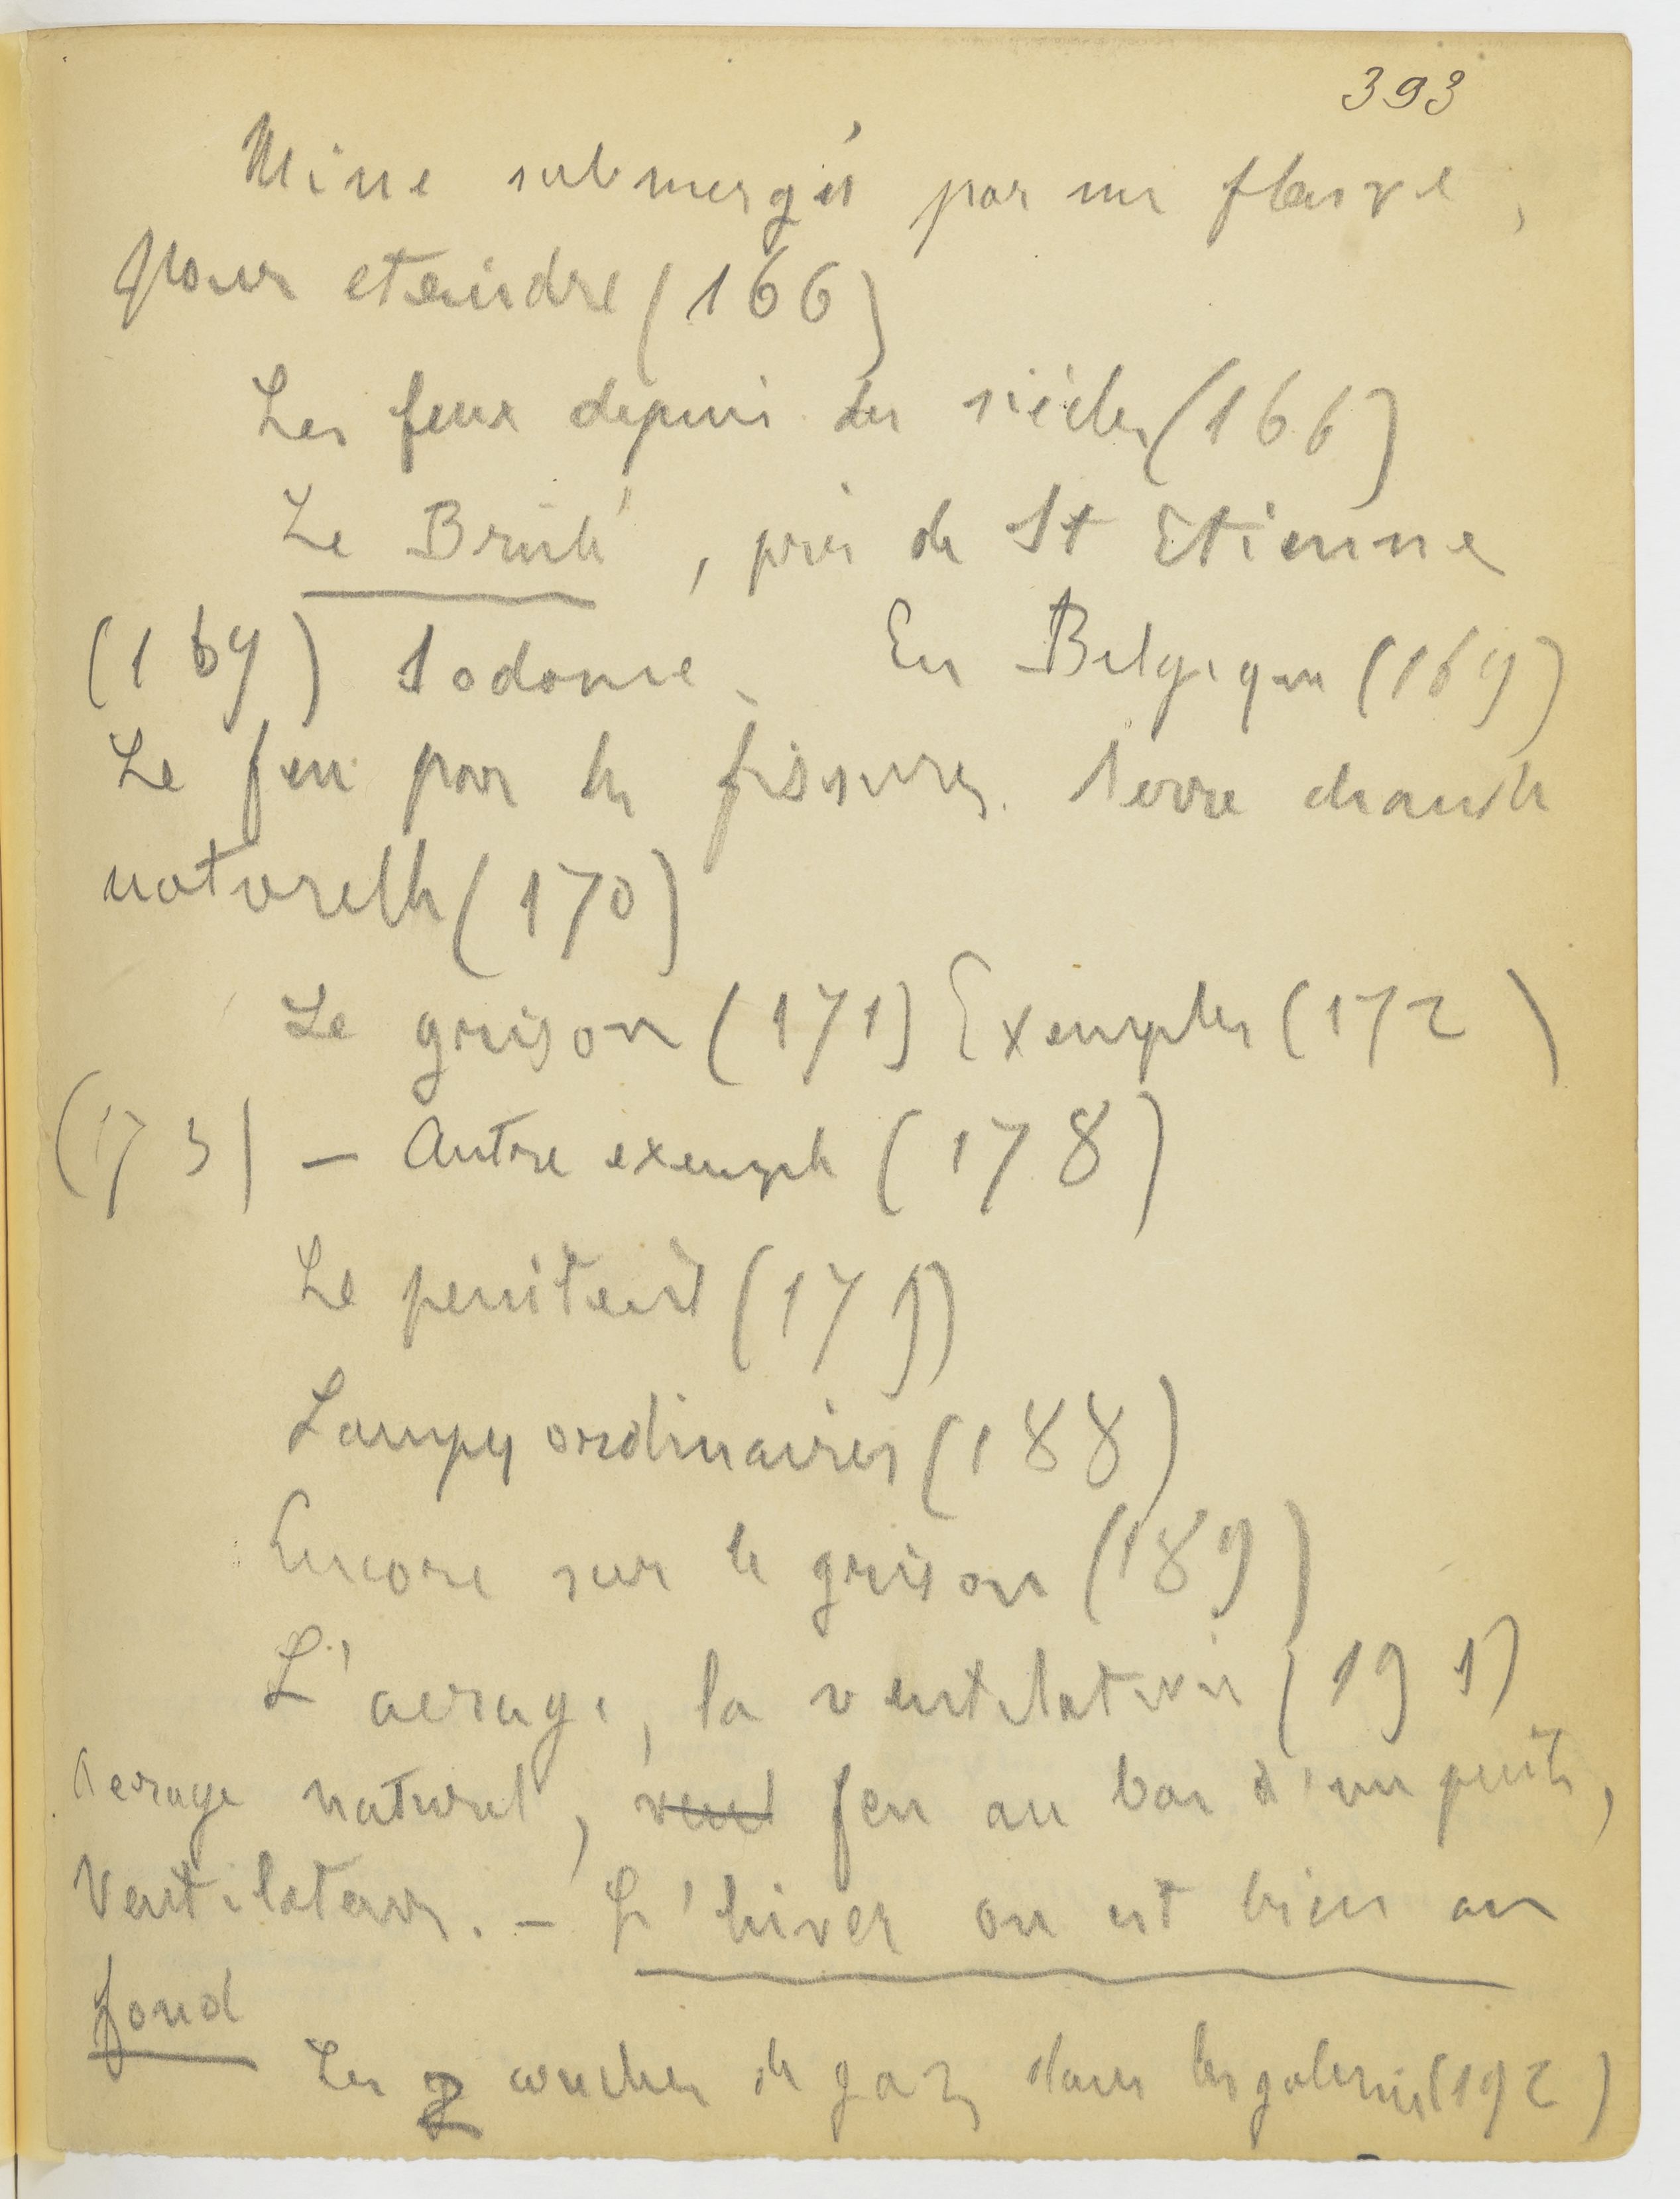 393
Mine submergée par un fleuve,
pour eteindre (166)
Les feux depuis des siècles (166)
Le Brulé, près de St Etienne
(169) Sodome. En Belgique (169)
Le feu par les fissures. Serre chaude
naturelle (170)
Le grisou (171) Exemples (172)
(173) — Autre exemple (178)
Le penitent (179)
Lampes ordinaires (188)
Encore sur le grisou (189)
L'aerage, la ventilation (191)
Aerage naturel, vent feu au bas d'un puits,
Ventilateurs. — L'hiver on est bien au
fond
Les 2 couches de gaz dans les galeries (192)